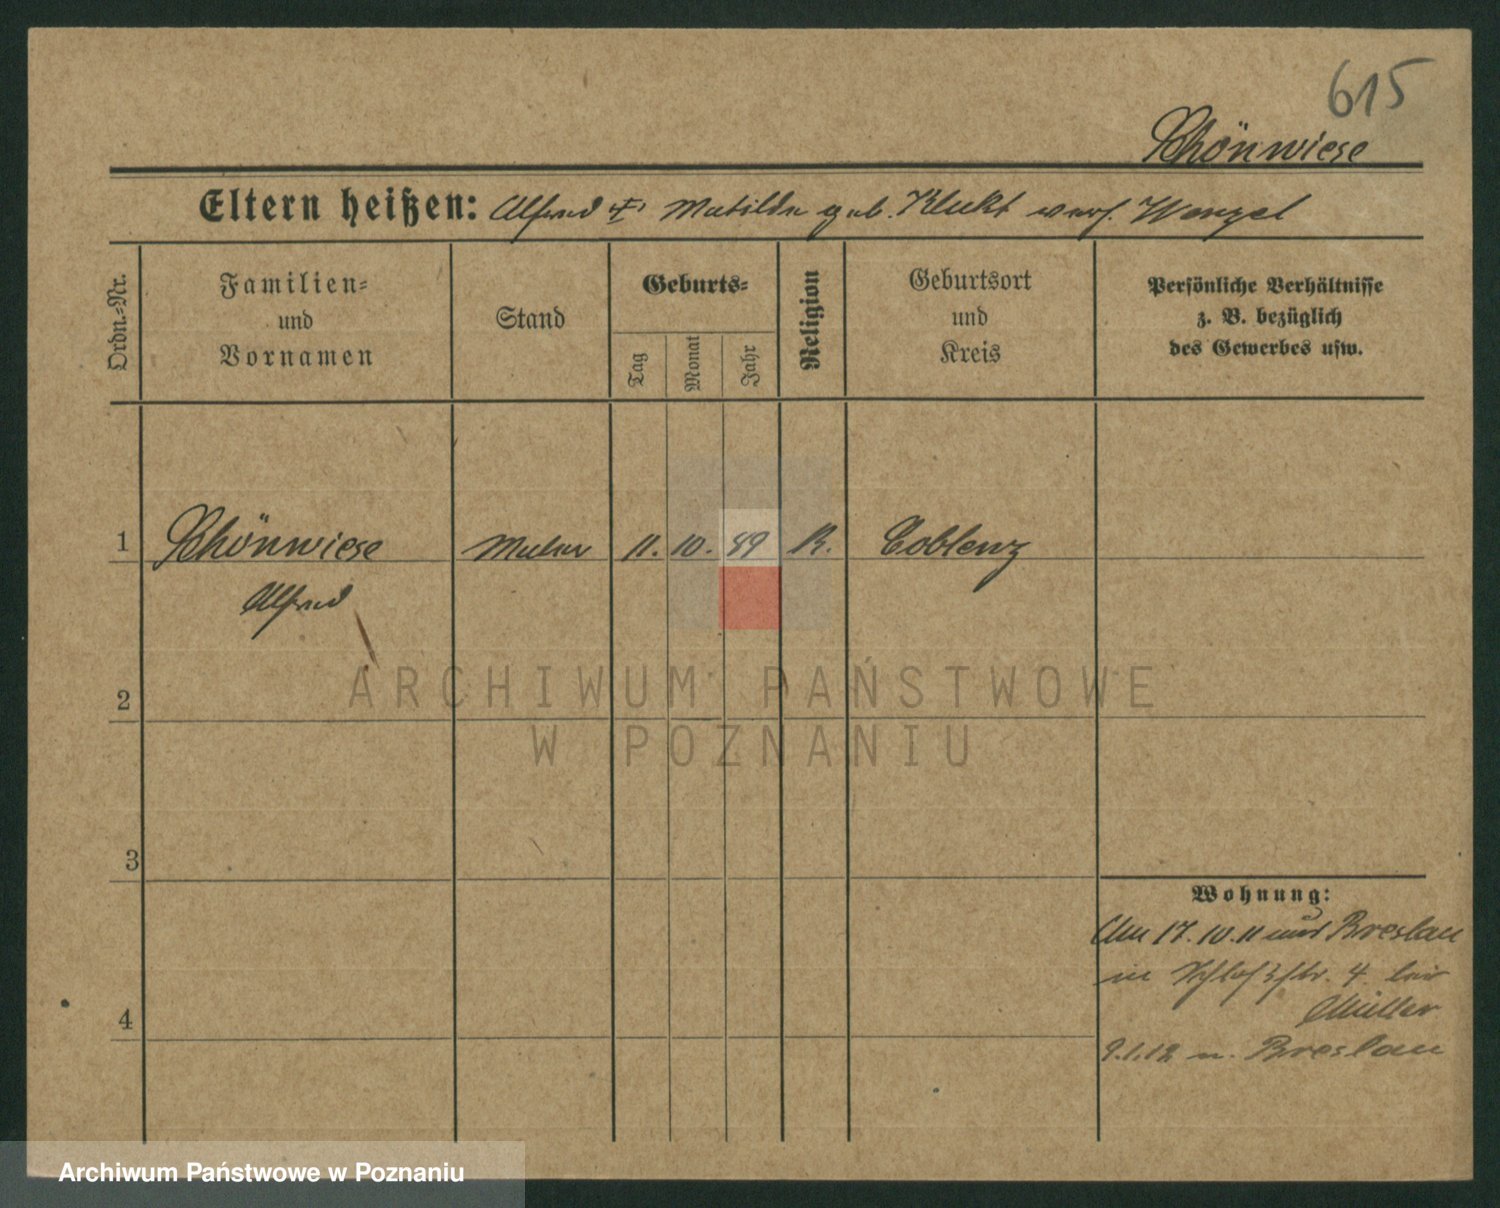 615
Schönwiese
Eltern heißen: Alfred † Matilde geb. Klukt verh. Wenzel
Ordn.-Nr.
Familien-
und
Vornamen
Stand
Geburts-
Tag
Monat
Jahr
Religion
Geburtsort
und
Kreis
Persönliche Verhältnisse
z. B. bezüglich
des Gewerbes usw.
1 Schönwiese Maler 11. 10. 89 K. Coblenz
Alfred
2
3
4
Wohnung:
Am 17.10.11 aus Breslau
in Schloßstr. 4 bei
Müller
9.1.12 n. Breslau
ARCHIWUM PAŃSTWOWE
W POZNANIU
Archiwum Państwowe w Poznaniu